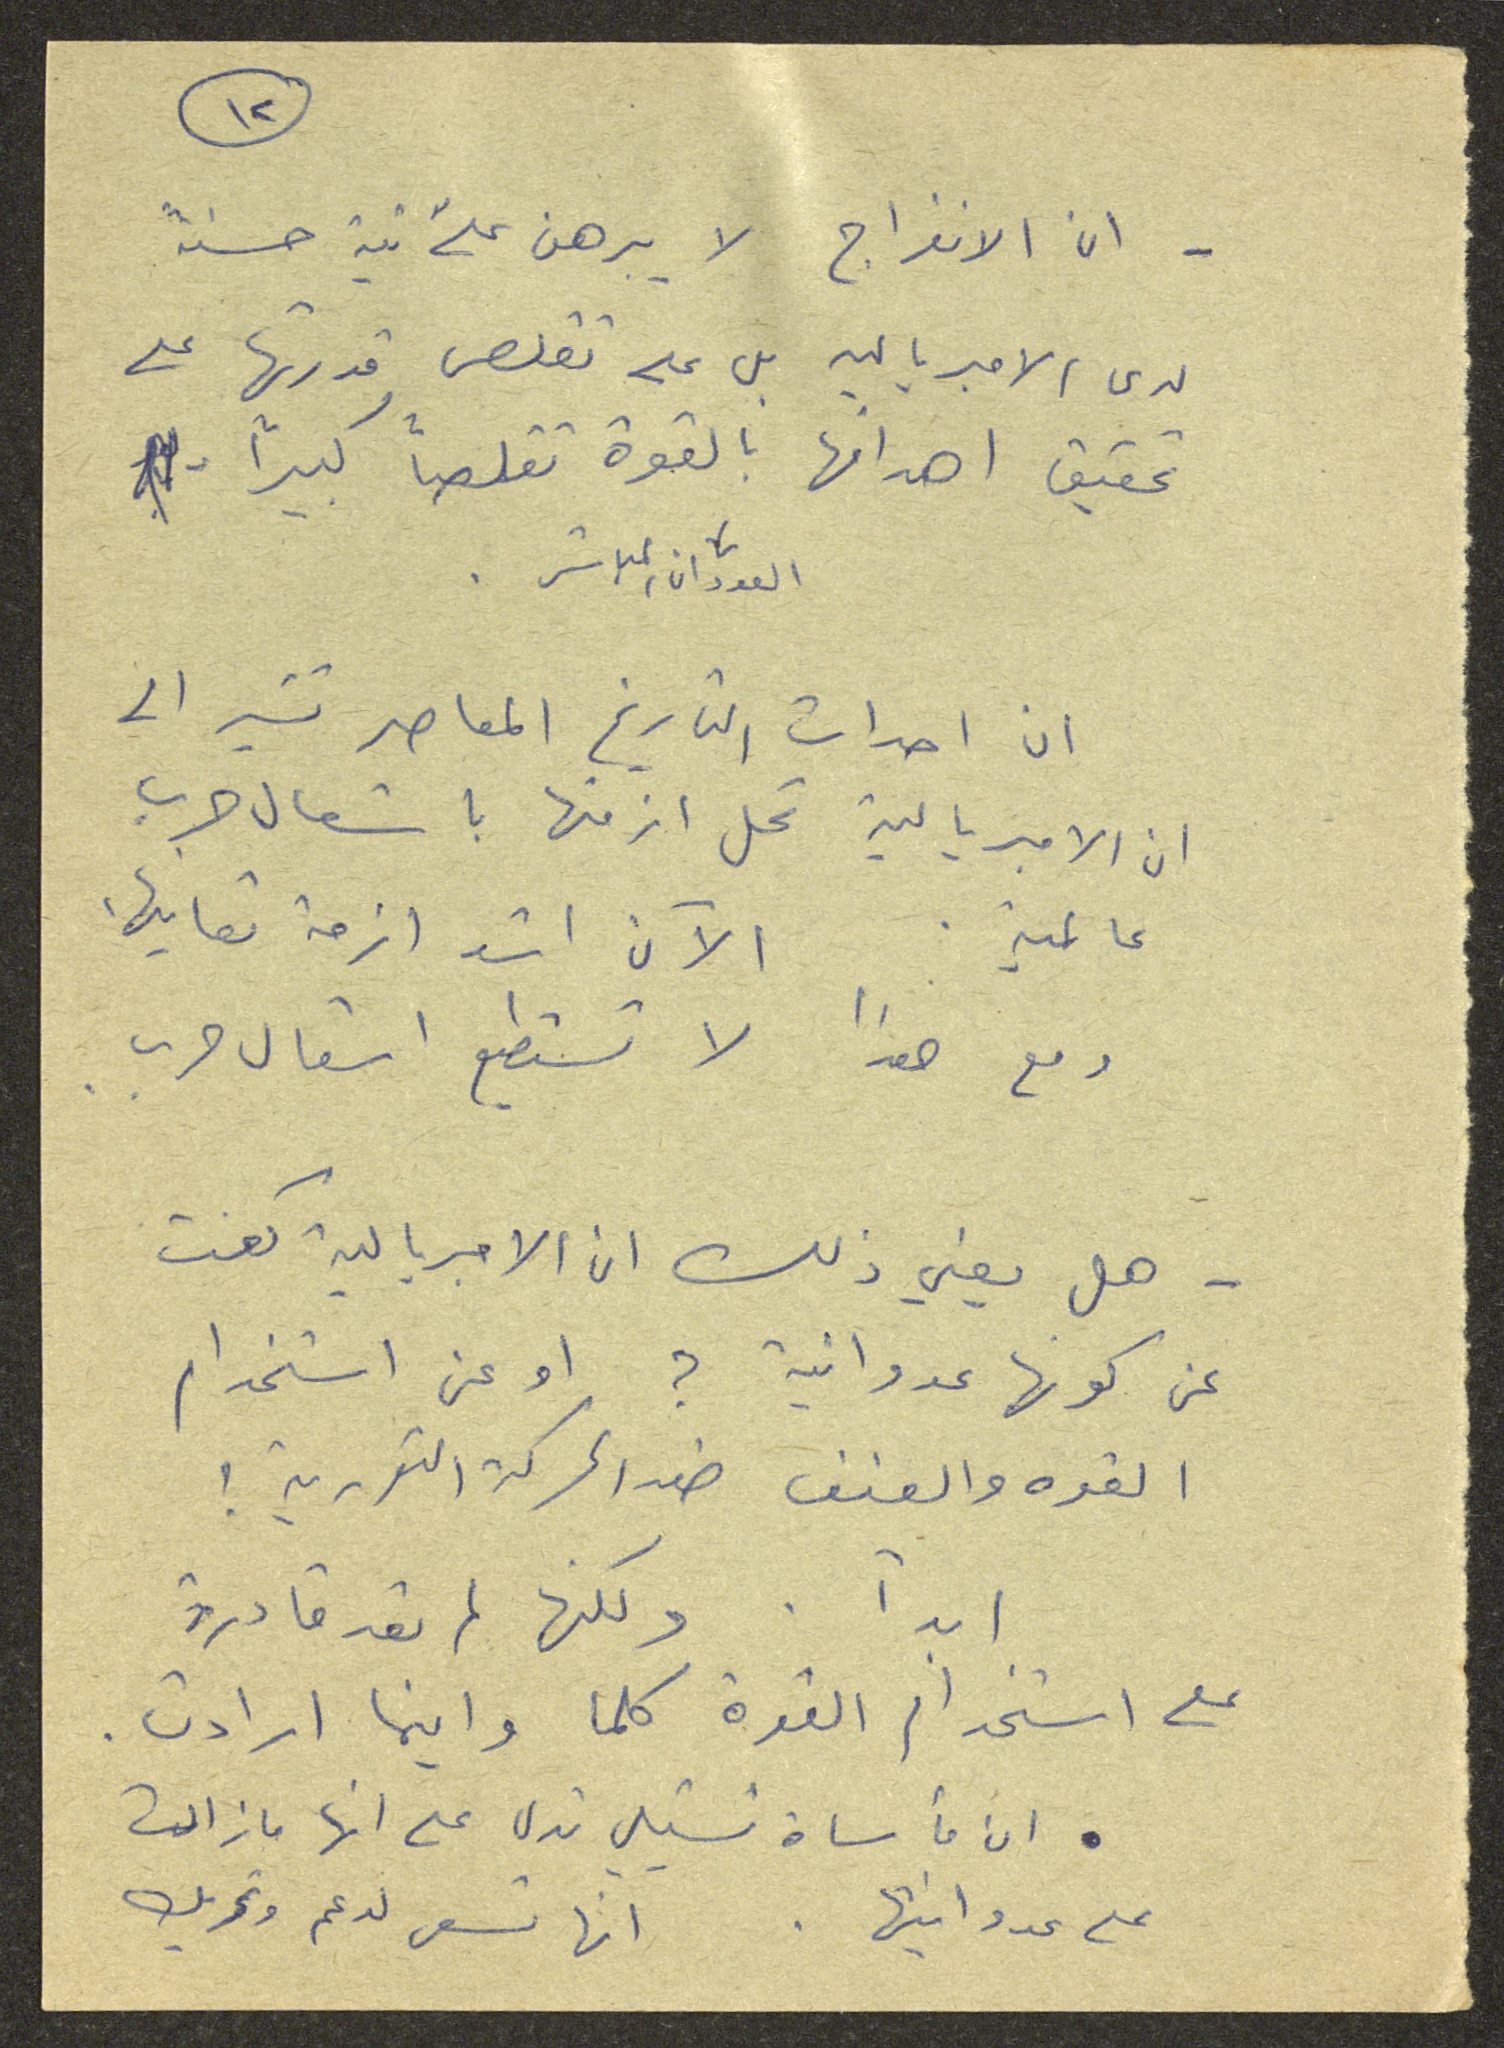 ١٢
- ان الانفراج لا يبرهن على نية حسنة
لدى الامبريالية بل على تقلص قدرتها على
تحقيق اهدافها بالقوة تقلصاً كبيراً -
العدوان المباشر .
ان احداث التاريخ المعاصر تشير الى
ان الامبريالية تحل ازمتها باشعال حرب
عالمية . الآن اشد ازمة تعانيها،
ومع هذا لا تستطيع اشعال حرب .
- هل يعني ذلك ان الامبريالية كفت
عن كونها عدوانية ؟ او عن استخدام
القوه والعنف ضد الحركة التحررية !
ابداً . ولكنها لم تعد قادرة
على استخدام القوة كلما واينما ارادت .
• ان مأساة تشيلي تدل على انها مازالت
على عدوانيتها . انها تسعى لدعم وتحريك